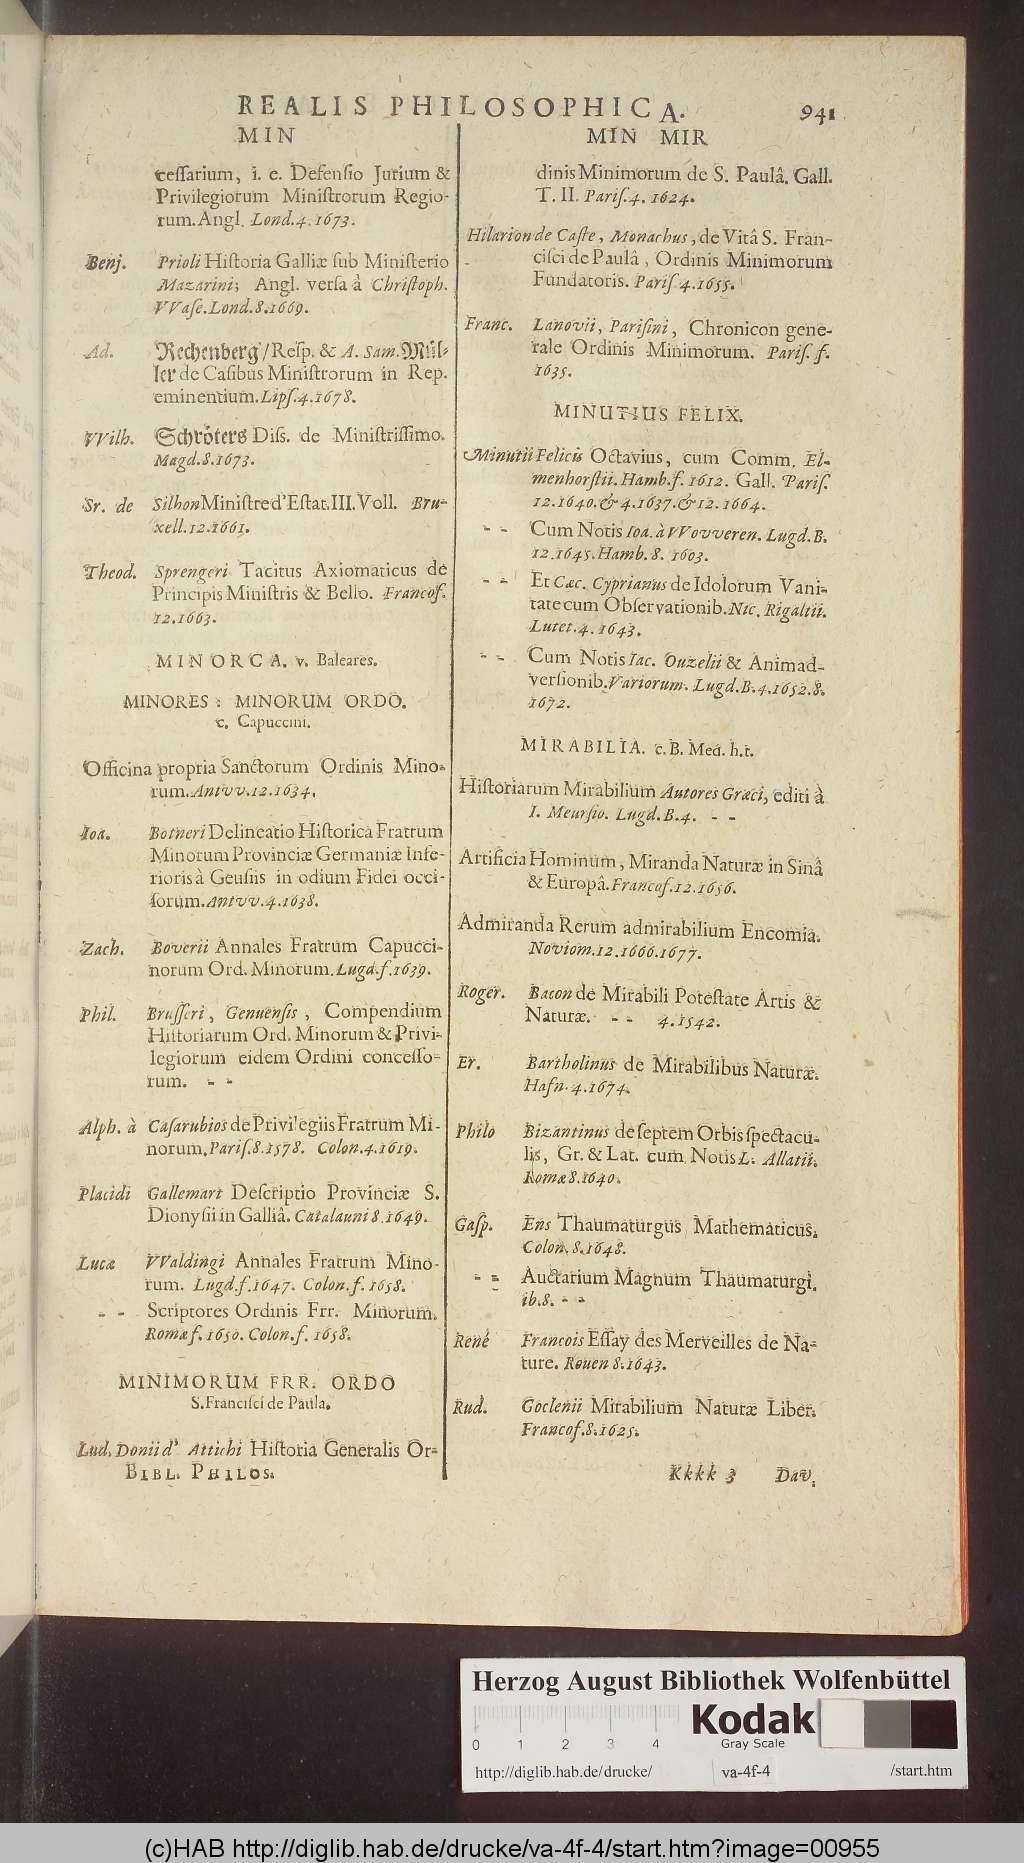 REALIS PHILOSOPHICA. 941
MIN
ceſſarium, i. e. Defenſio Jurium &
Privilegiorum Miniſtrorum Regio-
rum. Angl. Lond. 4. 1673.
Benj. Prioli Hiſtoria Galliæ ſub Miniſterio
Mazarini; Angl. verſa à Chriſtoph.
VVaſe. Lond. 8. 1669.
Ad. Rechenberg / Reſp. & A. Sam. Mül-
ler de Caſibus Miniſtrorum in Rep.
eminentium. Lipſ. 4. 1678.
VVilh. Schröters Diſſ. de Miniſtriſſimo.
Magd. 8. 1673.
Sr. de Silhon Miniſtre d'Eſtat. III. Voll. Bru-
xell. 12. 1661.
Theod. Sprengeri Tacitus Axiomaticus de
Principis Miniſtris & Bello. Francof.
12. 1663.
MINORCA. v. Baleares.
MINORES: MINORUM ORDO.
c. Capuccini.
Officina propria Sanctorum Ordinis Mino-
rum. Antvv. 12. 1634.
Ioa. Botneri Delineatio Hiſtorica Fratrum
Minorum Provinciæ Germaniæ Infe-
rioris à Geuſiis in odium Fidei occi-
ſorum. Antvv. 4. 1638.
Zach. Boverii Annales Fratrum Capucci-
norum Ord. Minorum. Lugd. f. 1639.
Phil. Bruſſeri, Genuenſis, Compendium
Hiſtoriarum Ord. Minorum & Privi-
legiorum eidem Ordini conceſſo-
rum. - -
Alph. à Caſarubios de Privilegiis Fratrum Mi-
norum. Pariſ. 8. 1578. Colon. 4. 1619.
Placidi Gallemart Deſcriptio Provinciæ S.
Dionyſii in Galliâ. Catalauni 8. 1649.
Lucæ VValdingi Annales Fratrum Mino-
rum. Lugd. f. 1647. Colon. f. 1658.
- - Scriptores Ordinis Frr. Minorum.
Romæ f. 1650. Colon. f. 1658.
MINIMORUM FRR. ORDO
S. Franciſci de Paula.
Lud. Donii d' Attichi Hiſtoria Generalis Or-
BIBL. PHILOS.
MIN MIR
dinis Minimorum de S. Paulâ. Gall.
T. II. Pariſ. 4. 1624.
Hilarion de Caſte, Monachus, de Vitâ S. Fran-
ciſci de Paulâ, Ordinis Minimorum
Fundatoris. Pariſ 4. 1655.
Franc. Lanovii, Pariſini, Chronicon gene-
rale Ordinis Minimorum. Pariſ. f.
1635.
MINUTIUS FELIX.
Minutii Felicis Octavius, cum Comm. El-
menhorſtii. Hamb. f. 1612. Gall. Pariſ.
12. 1640. & 4. 1637. & 12. 1664.
- - Cum Notis Ioa. à VVovveren. Lugd. B.
12. 1645. Hamb. 8. 1603.
- - Et Cæc. Cyprianus de Idolorum Vani-
tate cum Obſervationib. Nic. Rigaltii.
Lutet. 4. 1643.
- - Cum Notis Iac. Ouzelii & Animad-
verſionib. Variorum. Lugd. B. 4. 1652. 8.
1672.
MIRABILIA. c. B. Med. h. t.
Hiſtoriarum Mirabilium Autores Græci, editi à
I. Meurſio. Lugd. B. 4. - -
Artificia Hominum, Miranda Naturæ in Sinâ
& Europâ. Francof. 12. 1656.
Admiranda Rerum admirabilium Encomia.
Noviom. 12. 1666. 1677.
Roger. Bacon de Mirabili Poteſtate Artis &
Naturæ. - - 4. 1542.
Er. Bartholinus de Mirabilibus Naturæ.
Hafn. 4. 1674.
Philo Bizantinus de ſeptem Orbis ſpectacu-
lis, Gr. & Lat. cum Notis L. Allatii.
Romæ 8. 1640.
Gaſp. Ens Thaumaturgus Mathematicus.
Colon. 8. 1648.
- - Auctarium Magnum Thaumaturgi.
ib. 8. - -
René Francois Eſſay des Merveilles de Na-
ture. Rouen 8. 1643.
Rud. Goclenii Mirabilium Naturæ Liber.
Francof. 8. 1625.
Kkkk 3 Dav.
Herzog August Bibliothek Wolfenbüttel
Kodak
Gray Scale
0 1 2 3 4
http://diglib.hab.de/drucke/ va-4f-4 /start.htm
(c)HAB http://diglib.hab.de/drucke/va-4f-4/start.htm?image=00955